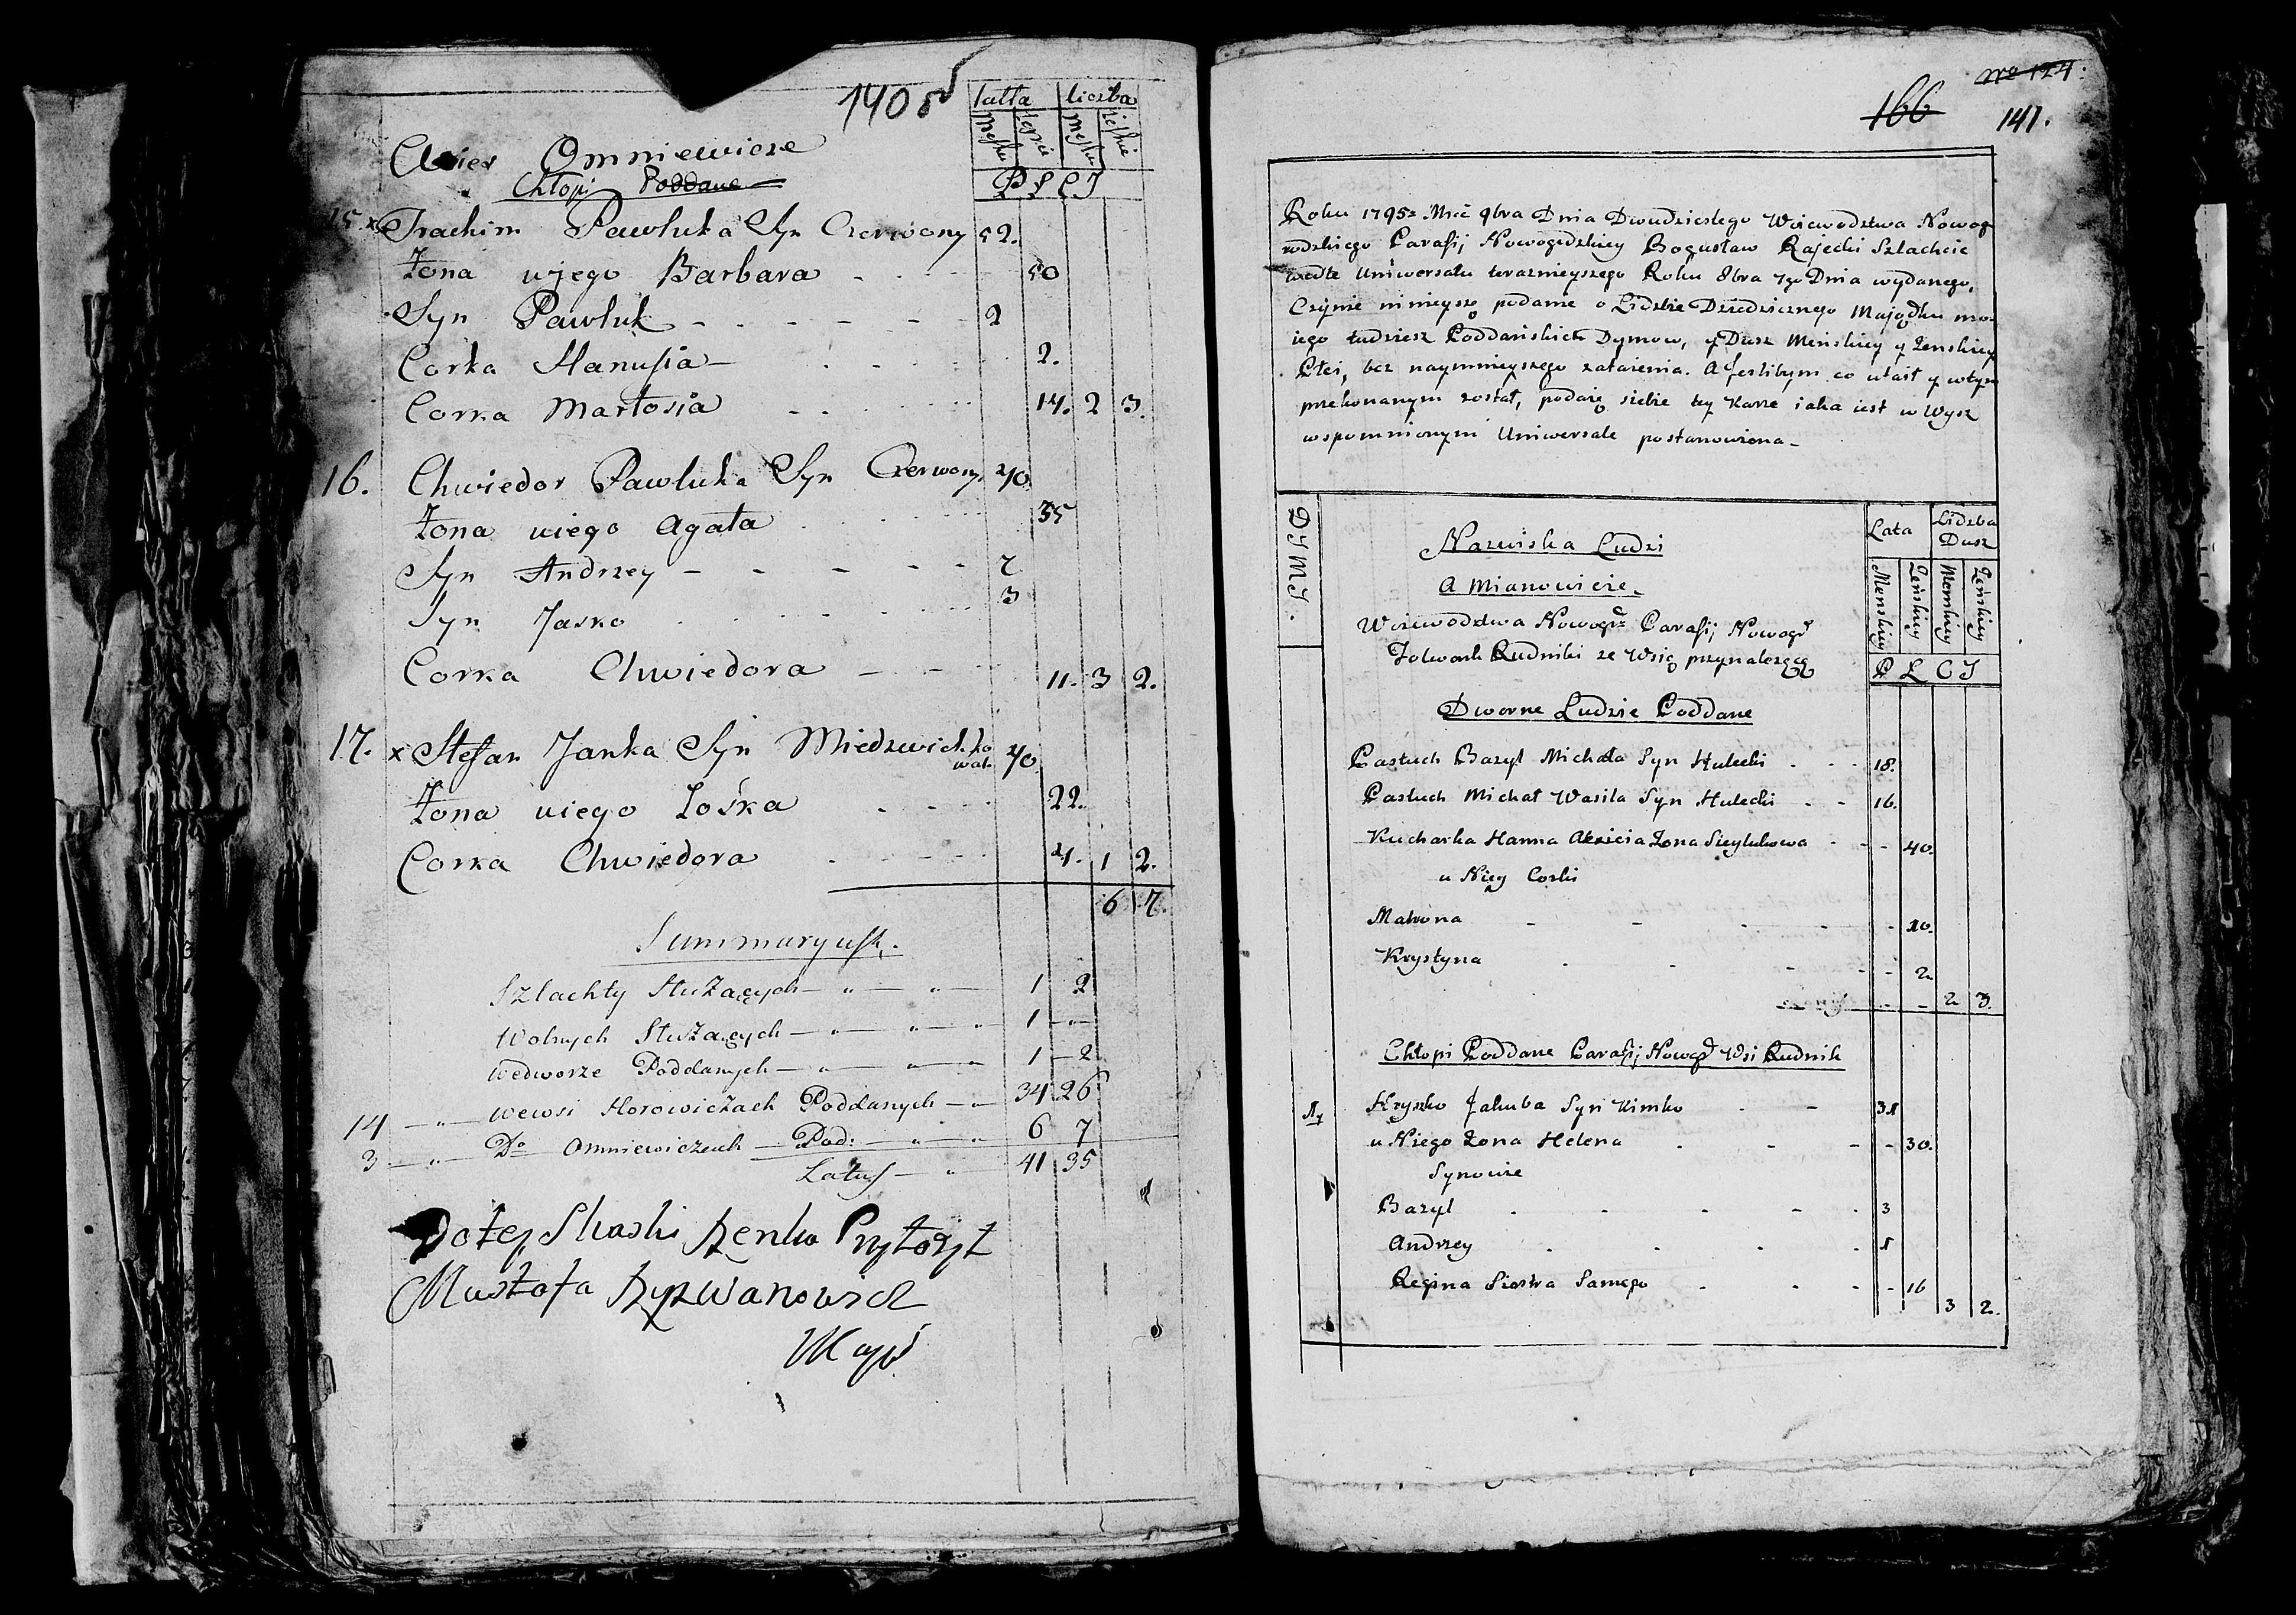 140 об
latta liczba
Męskie Męskie
P L C J
Wies Omniewicze
Chłopi Poddane
15. x Jrachim Pawluka Syn Czerwony 52.
Żona ujego Barbara 50
Syn Pawluk 2
Corka Hanusia 2.
Corka Martosia 17. 2 3.
16. Chwiedor Pawluka Syn Czerwony 40
Żona uiego Agata 35
Syn Andrzey 7
Syn Jasko 3
Corka Chwiedora 11. 3 2.
17. x Stefan Janka Syn 40
Żona uiego Zośka 22.
Corka Chwiedora 4. 1 2.
6 7.
Summaryusz.
Szlachty Służących 1 2
Wolnych Służących 1 -
wedworze Poddanych 1 2
14 wewsi Horowiczach Poddanych 34 26
3 Do Omniewiczach Pod: 6 7
Latus 41 35
Mustafa Ryzwanowicz
No 124.
166 141.
Roku 1795 Mca 9bra Dnia Dwudziestego Woiewodztwa Nowog
rodzkiego Parafij Nowogrodzkiey Bogusław Rajecki Szlachcic
wedle Uniwersału teraznieyszego Roku 8bra 7go Dnia wydanego,
Czynie ninieysze podanie o Lidzbie Dziedzicznego Majątku mo-
iego tudziesz Poddanskich Dymow, y Dusz Menskiey y Zenskiey
Płci, bez naymnieyszego zataienia. A jeslibym co utaił y wtym
przekonanym został, podaię siebie tey Karze iaka iest w Wysz
wspomnionym Uniwersale postanowiona-
DYMY.
Nazwiska Ludzi
A Mianowicie.
Lata Lidzba Dusz
Menskiey Zenskiey Menskiey Zenskiey
P L C J
Woiewodztwa Nowogr Parafij Nowogr
Folwark Rudniki ze Wsią przynależącą
Dworne Ludzie Poddane
Pastuch Bazyl Michała Syn Hulecki 18.
Pastuch Michał Wasila Syn Hulecki 16.
Kucharka Hanna Żona 40.
u Niey Corki
Matrona 10.
Krystyna 2.
2 3.
Chłopi Poddane Parafij Nowogr Wsi Rudnik
1 Hryszko Jakuba Syn Kimko 31
u Niego Żona Helena 30.
Synowie
Bazyl 3
Andrzey 1
Regina Siostra Samego 16
3 2.